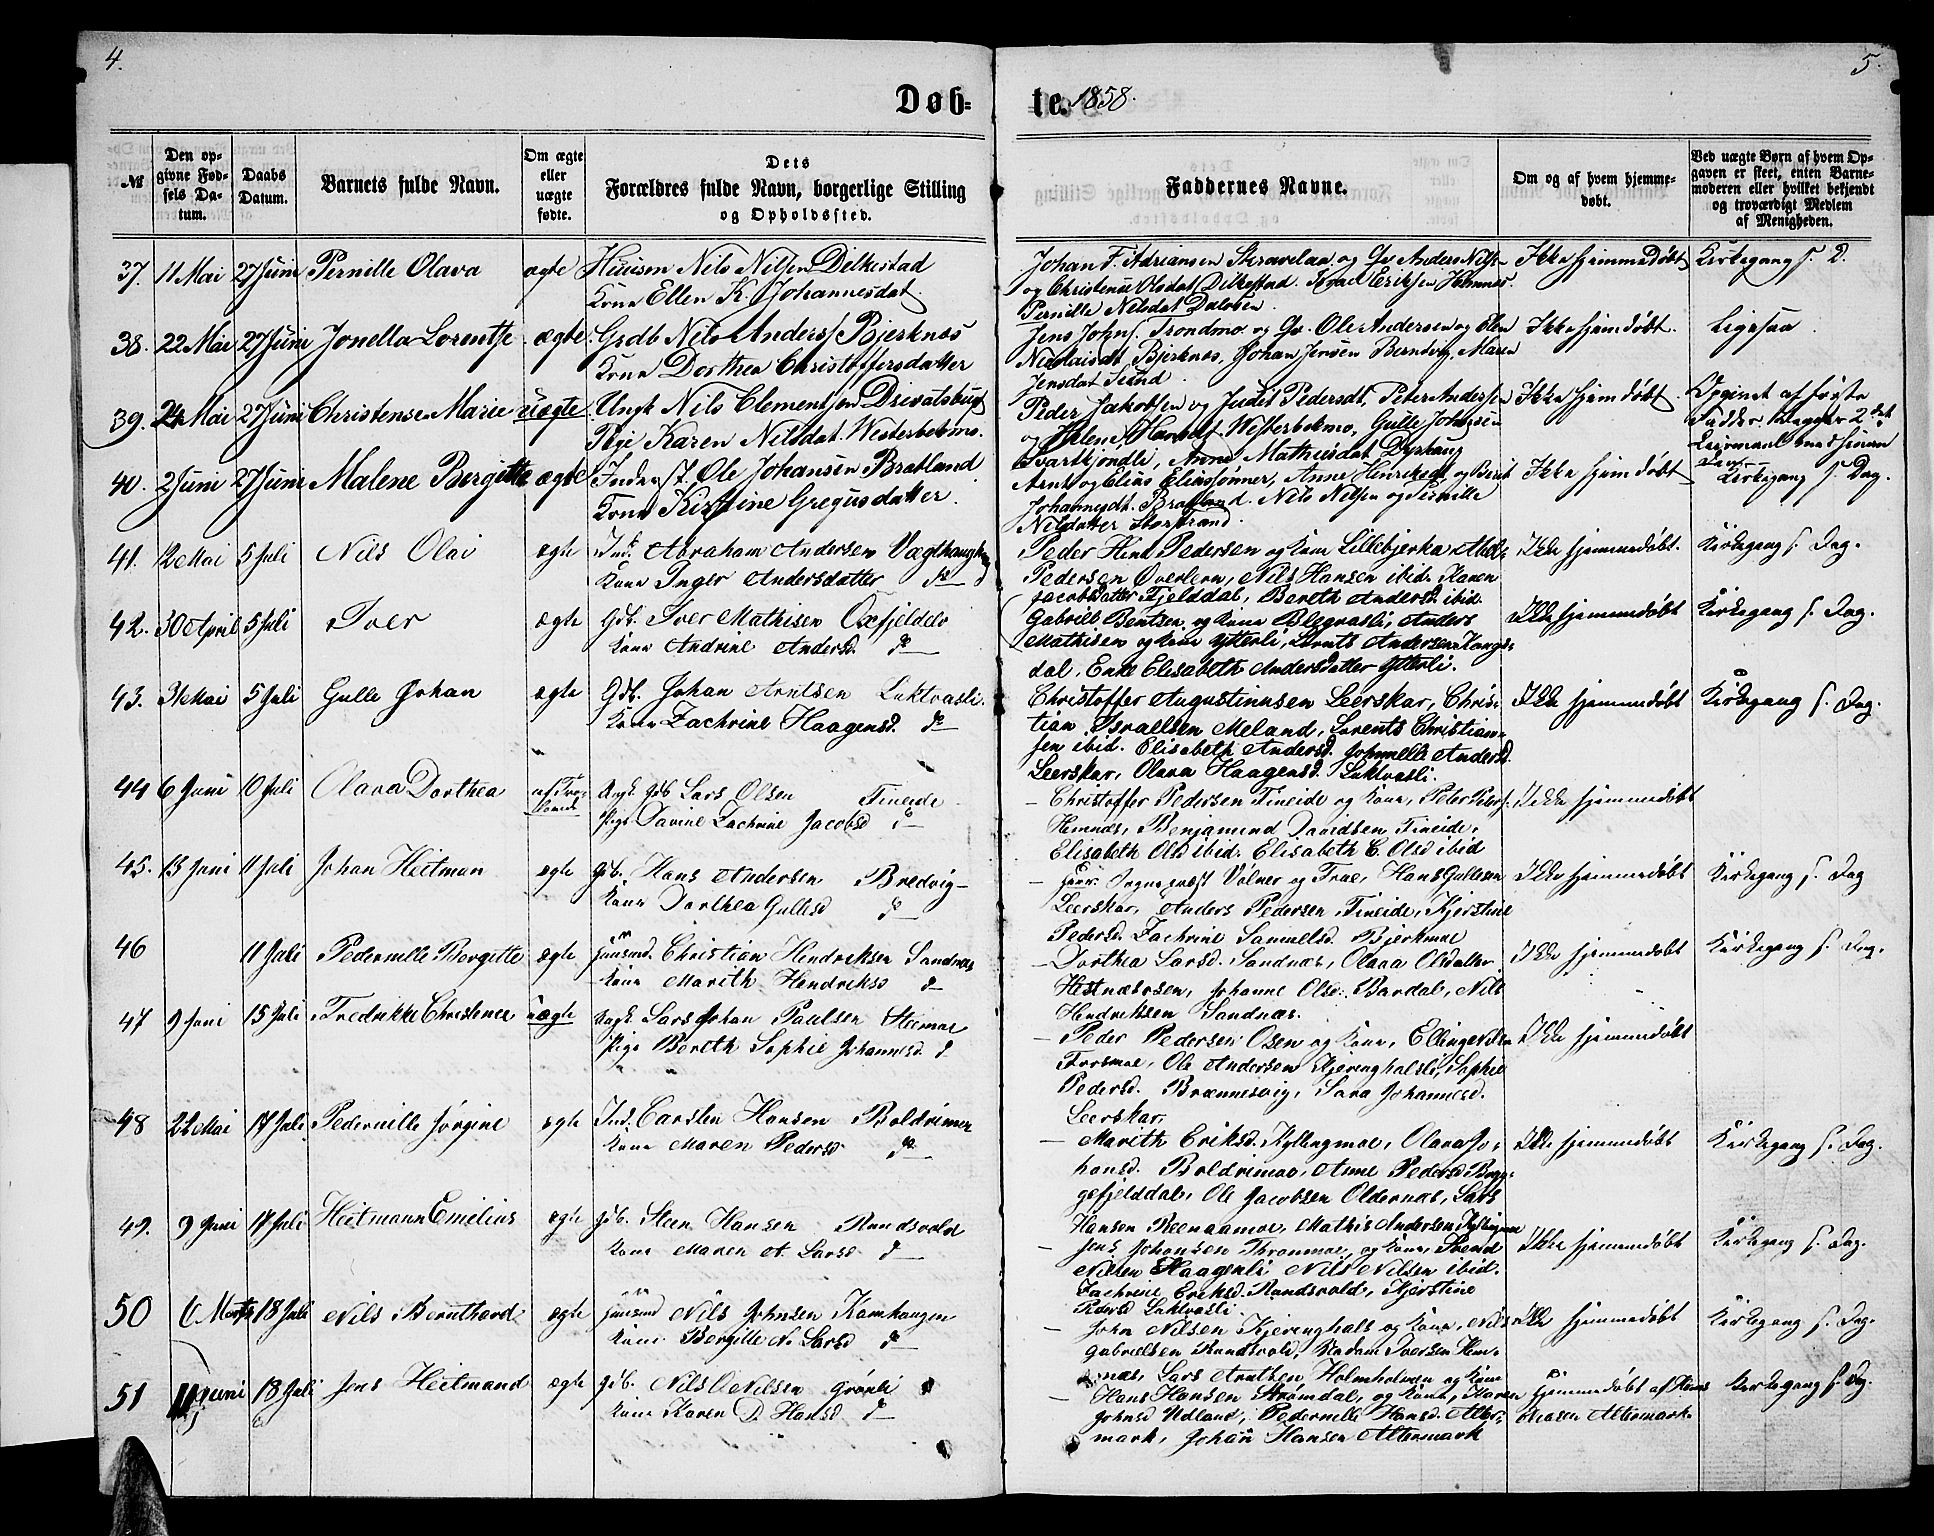 4.
5.
Døb-
te. 1858.
№
Den op-
givne Fød-
sels Da-
tum.
Daabs
Datum.
Barnets fulde Navn.
Om ægte
eller
uægte
fødte.
Dets
Forældres fulde Navn, borgerlige Stilling
og Opholdssted.
Faddernes Navne.
Om og af hvem hjemme-
døbt.
Ved uægte Børn af hvem Op-
gaven er skeet, enten Barne-
moderen eller hvilket bekjendt
og troværdigt Medlem
af Menigheden.
37. 11 Mai 27 Juni Pernille Olava ægte Huusm Nils Nilsen Dilkestad
Kone Ellen K. Johannesdat.
Johan F. Adriansen og Gv Anders Nils
og Christense Olsdat Dilkestad. Israel Eriksen Hemnes.
Pernille Nilsdat Dalosen
Ikke hjemmedøbt Kirkegang s. D.
38. 22 Mai 27 Juni Jonella Lorentse ægte Grdb Nils Anders. Bjerknæs
Kone Dorthea Christoffersdatter
Jens Johns. Trondmo og Gv. Ole Andersen og Elen
Nicolaisdt Bjerknes, Johan Jensen Berndvig, Maren
Jensdat Sund
Ikke hjemdøbt. Ligesaa
39. 24 Mai 27 Juni Christense Marie uægte Ungk Nils Clementsen
Pige Karen Nilsdat. Westerbotmo.
Peder Jakobsen og Judet Pedersdt, Peter Andersen
og Helene Hansdt Westerbotmo, Gulle Johnsen
Svartkjondli, Anne Mathisdat Dyrhaug
Ikke hjemdøbt. Opgivet af første
Fadder. begges 2det
40. 2 Juni 27 Juni Malene Bergitte ægte Inderst. Ole Johansen Bratland
Kone Kirstine Gregusdatter.
Arnt og Elias Eliassønner, Anne Henriksdt og Berit
Johannesdt. Bratland. Nils Nilsen og Pernille
Nilsdatter Storstrand.
Ikke hjemdøbt Kirkegang s. Dag.
41. 12 Mai 5 Juli Nils Olai ægte Ind. Abraham Andersen Vægthaug
Kone Inger Andersdatter do
Peder Hend Pedersen og Kone Lillebjerka
Pedersen Øverlern, Nils Hansen ibid. Karen
Jacobsdatter Fjelddal, Bereth Andersd. ibid.
Ikke hjemmedøbt. Kirkegang s. Dag.
42. 30 April 5 Juli Iver ægte Gdb. Iver Mathisen Oxfjeldelv
Kone Andrine Andersd. do
Gabriel Bentsen og Kone Blegvasli, Anders
Mathisen og Kone Ytterli, Lorents Andersen Kongs-
dal, Enke Elisabeth Andersdatter Ytterli.
Ikke hjemmedøbt Kirkegang s. Dag.
43. 31 Mai 5 Juli Gulle Johan ægte Gdb. Johan Arntsen Luktvasli.
Kone Zachrine Haagensd. do
Christoffer Augustinusen Leerskar, Chris-
tian Israelsen Meland, Lorents Christian-
sen ibid. Elisabeth Andersd. Johnelle Andersd.
Leerskar, Olava Haagensd. Luktvasli.
Ikke hjemmedøbt Kirkegang s. Dag.
44 6 Juni 10 Juli Olava Dorthea Ungk Gdb Lars Olsen Fineide
Pige Davine Zachrine Jacobsd do
– Christoffer Pedersen Fineide og Kone, Peter Peters.
Hemnæs, Benjamind Davidsen Fineide,
Elisabeth Olsd ibid. Elisabeth C. Olsd ibid
Ikke hjemmedøbt
45. 13 Juni 11 Juli Johan Heitman ægte Gdb. Hans Andersen Bredvig
Kone Dorthea Gullesd do
Volner og Frue, Hans Gullesen
Leerskar, Anders Pedersen Fineide, Kjerstine
Pedersd. Zachrine Samuelsd. Bjerkmoe
Ikke hjemmedøbt Kirkegang s. Dag
46 11 Juli Pedernille Bergitte ægte Huusmd. Christian Hendriksen Sandnæs
Kone Marith Hendriksd do
– Dorthea Larsd. Sandnæs, Olava Olsdatter
Hestnæsosen, Johanne Olsd. Bardal, Nils
Hendriksen Sandnæs.
Ikke hjemmedøbt Kirkegang s. Dag.
47 9 Juni 15 Juli Fredrikke Christence uægte Ungk Lars Johan Paulsen
Pige Bereth Sophie Johannesd do
– Peder Pedersen Osen og Kone, Elling Nilsen
Forsmoe, Ole Andersen Kjeringhalsli, Sophie
Pedersd. Brænnesvig, Sara Johannesd.
Leerskar.
Ikke hjemmedøbt
48 22 Mai 17 Juli Pedernille Jørgine ægte Ind. Carsten Hansen Boldrimoe
Kone Maren Pedersd do
– Marith Eriksd. Kyllingmoe, Olava Jo-
hansd. Boldrimoe, Anne Pedersd Bryg-
gefjelddal, Ole Jacobsen Oldernæs, Lars
Hansen Reenaamoe, Mathis Andersen Kyllingmoe
Ikke hjemmedøbt Kirkegang s. Dag.
49. 9 Juni 17 Juli Heitmann Emelius ægte Gdb. Steen Hansen Rundsvold
Kone Maren A. Larsd do
– Jens Johansen Thronmoe, og Kone, Svend
Nilsen Haagenli Nils Nilsen ibid.
Zachrine Eriksd. Rundsvold, Kjerstine
Pedersd Luktvasli
Ikke hjemmedøbt Kirkegang s. Dag.
50 6 Marts 18 Juli Nils Bernthard ægte Huusmd Nils Johnsen Kamhaugen
Kone Bergitte N. Larsd do
– John Nilsen Kjeringhals og Kone, Nils
Gabrielsen Rundsvold, Madam Iversen Hem-
næs, Lars Arntsen Holmholmen og Kone
Ikke hjemmedøbt Kirkegang s. Dag.
51 11 Juni 18 Juli Jens Heitmand ægte Gdb. Nils O Nilsen Grønli
Kone Karen D. Hansd do
– Hans Hansen Strømdal, og Kone, Karen
Johnsd Udland, Pedernille Hansd. Alter-
mark, Johan Hansen Altermark
Hjemmedøbt af Hans
Altermark. Kirkegang s. Dag.